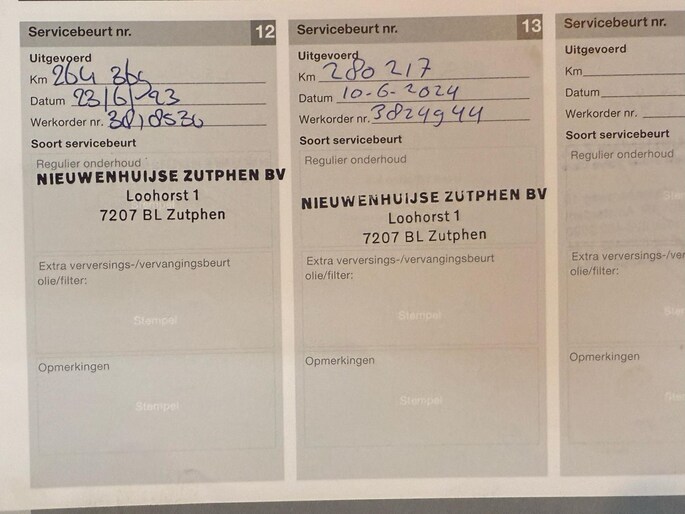 Servicebeurt nr. 12
Uitgevoerd
Km 264 369
Datum 23/6/-23
Werkorder nr.
Soort servicebeurt
Regulier onderhoud
NIEUWENHUIJSE ZUTPHEN BV
Loohorst 1
7207 BL Zutphen
Extra verversings-/vervangingsbeurt
olie/filter:
Stempel
Opmerkingen
Stempel
Servicebeurt nr. 13
Uitgevoerd
Km 280 217
Datum 10-6-2024
Werkorder nr. 3824944
Soort servicebeurt
Regulier onderhoud
NIEUWENHUIJSE ZUTPHEN BV
Loohorst 1
7207 BL Zutphen
Extra verversings-/vervangingsbeurt
olie/filter:
Stempel
Opmerkingen
Stempel
Servicebeurt nr.
Uitgevoerd
Km
Datum
Werkorder nr.
Soort servicebeurt
Regulier onderhoud
Extra verversings-/verva
olie/filter:
Opmerkingen